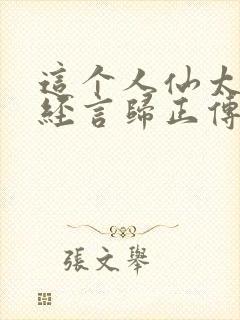 這个人仙太
經言歸正傳
張文舉